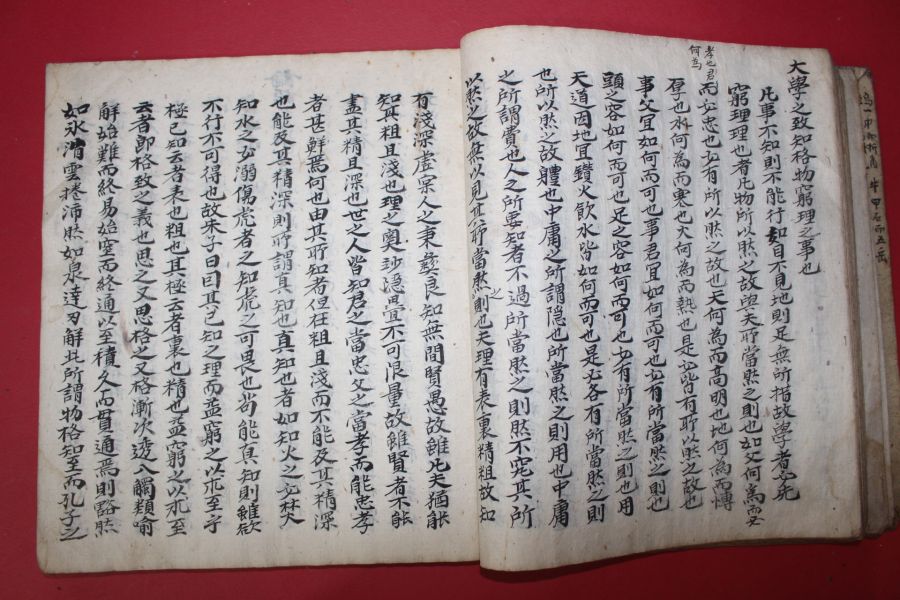 大學之致知格物窮理之事也
凡事不知則不能行如目不見地則足無所措故學者必先
窮理理也者凡物所以然之故與夫所當然之則也如父何為而必
孝也君何為
而必忠也必有所以然之故也天何為而高明也地何為而博
厚也水何為而寒也火何為而熱也是必皆有所以然之故也
事父宜如何而可也事君宜如何而可也必有所當然之則也
頭之容如何而可也足之容如何而可也必有所當然之則也用
天道因地宜鑽火飲水皆如何而可也是必各有所當然之則
也所以然之故體也中庸之所謂隱也所當然之則用也中庸
之所謂費也人之所要知者不過所當然之則然不究其所
以然之故無以見其所當然之則也天理有表裏精粗故知
有淺深虛宲人之秉彝良知無間賢愚故雖凡夫猶能
知其粗且淺也理之奧玅隱疊不可限量故雖賢者不能
盡其精且深也世之人皆知君之當忠父之當孝而能忠孝
者甚鮮焉何也由其所知者但在粗且淺而不能及其精深
也能及其精深則所謂真知也真知也者如知火之必焚
知水之必溺傷虎者之知虎之可畏也尚能真知則雖欲
不行不可得也故朱子曰因其已知之理而益窮之以求至乎
極已知云者表也粗也其極云者裏也精也益窮之以求至
云者即格致之義也思之又思格之又格漸次透入觸類喻
解始難而終易始窒而終通以至積久而貫通焉則豁然
如氷消雪捲沛然如泉達刃解此所謂物格知至而孔子之